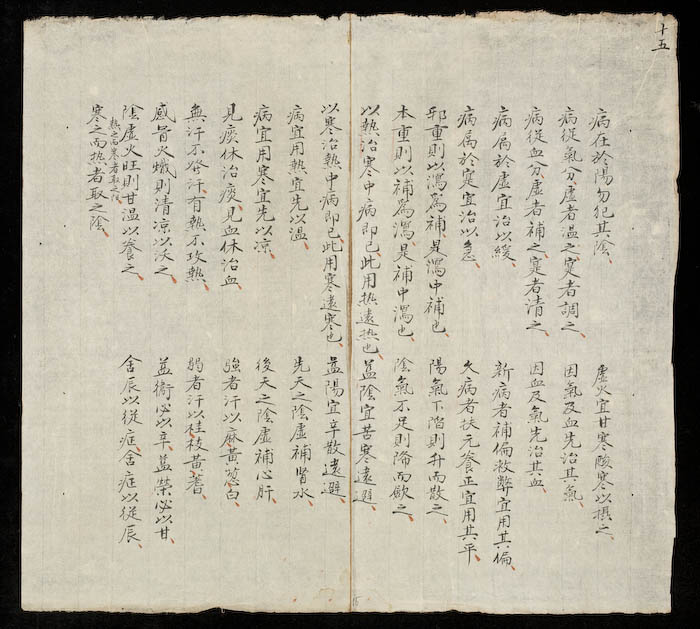 十五
病在於陽勿犯其陰 虛火宜甘寒酸寒以摂之
病從氣分虛者温之寔者調之 因氣及血先治其氣
病從血分虛者補之寔者清之 因血及氣先治其血
病属於虛宜治以緩 新病者補偏救弊宜用其偏
病属於寔宜治以急 久病者扶元飬正宜用其平
邪重則以瀉爲補是瀉中補也 陽氣下陷則升而散之
本重則以補爲瀉是補中瀉也 陰氣不足則降而歛之
以熱治寒中病即已此用热遠热也 益陰宜苦寒遠避
以寒治熱中病即已此用寒遠寒也 益陽宜辛散遠避
病宜用熱宜先以温 先天之陰虛補腎水
病宜用寒宜先以凉 後天之陰虛補心肝
見痰休治痰見血休治血 強者汗以麻黃葱白
無汗不發汗有熱不攻熱 弱者汗以桂枝黃蓍
感冒火熾則清凉以沃之 益衛必以辛益榮必以甘
陰虛火旺則甘温以飬之 舍辰以從症舍症以從辰
热之而寒者取之陽
寒之而热者取之陰